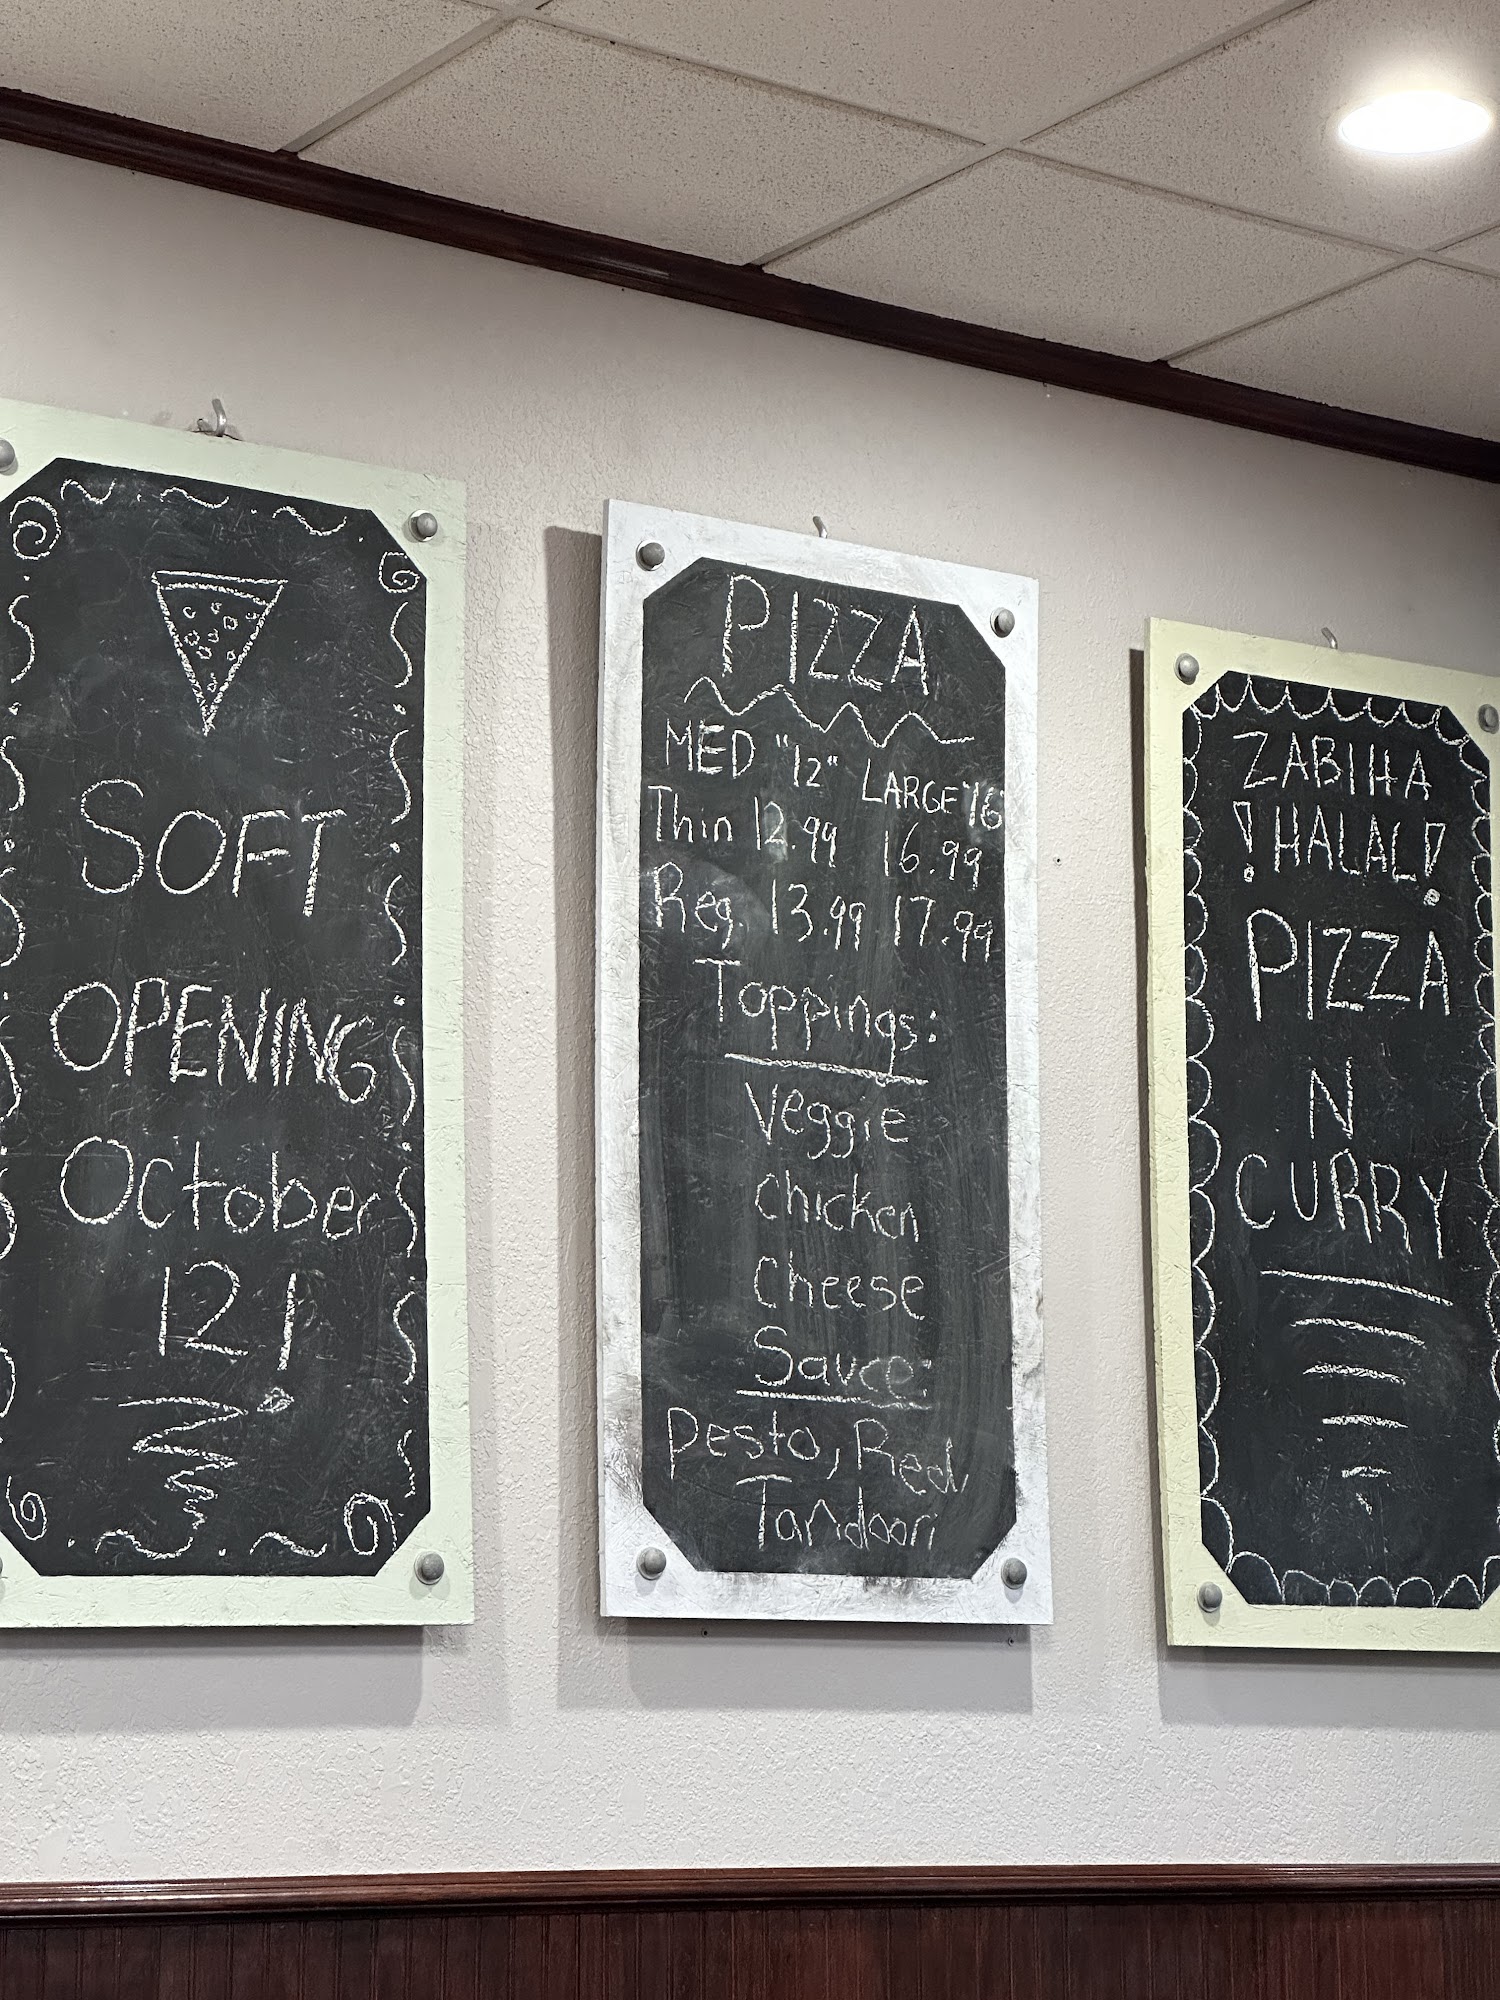 SOFT
OPENING
October
12!
PIZZA
MED "12" LARGE "16"
Thin 12.99 16.99
Reg. 13.99 17.99
Toppings:
Veggie
chicken
Cheese
Sauce:
Pesto, Red
Tandoori
ZABIHA
!HALAL!
PIZZA
N
CURRY